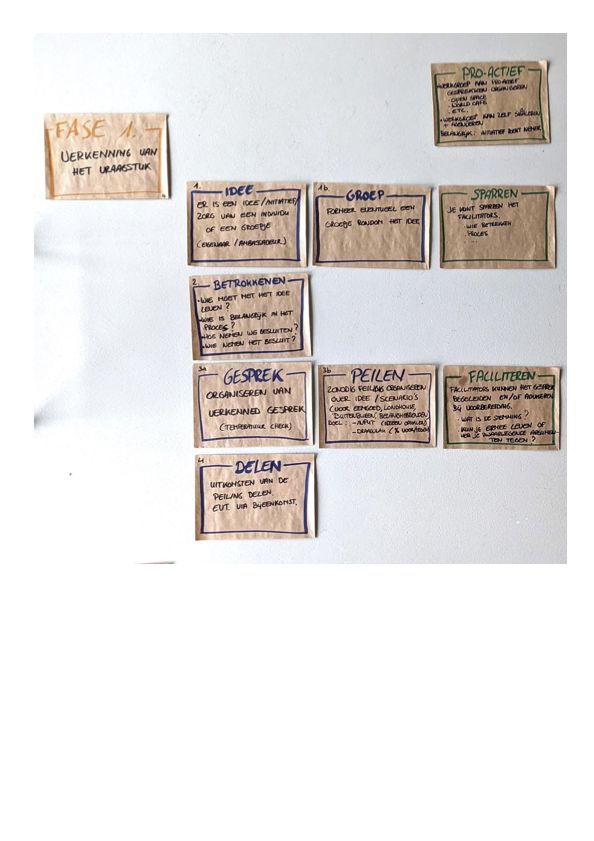 FASE 1.
VERKENNING VAN
HET VRAAGSTUK
PRO-ACTIEF
WERKGROEP KAN PRO-ACTIEF
GESPREKKEN ORGANISEREN
· OPEN SPACE
· WORLD CAFÉ
· ETC.
• WERKGROEP KAN ZELF
+ AGENDEREN
BELANGRIJK: INITIATIEF
1.
IDEE
ER IS EEN IDEE/INITIATIEF/
ZORG VAN EEN INDIVIDU
OF EEN GROEPJE
(EIGENAAR / AMBASSADEUR)
1b
GROEP
FORMEER EVENTUEEL EEN
GROEPJE RONDOM HET IDEE
SPARREN
JE KUNT SPARREN MET
FACILITATORS.
· WIE BETREKKEN
· PROCES
· ...
2.
BETROKKENEN
• WIE MOET MET HET IDEE
LEVEN?
• WIE IS BELANGRIJK IN HET
PROCES?
• HOE NEMEN WE BESLUITEN?
• WIE NEMEN HET BESLUIT?
3a
GESPREK
ORGANISEREN VAN
VERKENNEND GESPREK
(TEMPERATUUR CHECK)
3b
PEILEN
ZONODIG PEILING ORGANISEREN
OVER IDEE / SCENARIO'S
(DOOR EEMGOED, WOONHOUSE,
BUITENBUREN, BELANGHEBBENDEN
DOEL: - INPUT (IDEEËN OPHALEN)
- DRAAGVLAK (% VOOR/TEGEN)
FACILITEREN
FACILITATORS KUNNEN HET GESPREK
BEGELEIDEN EN/OF ADVISEREN
BIJ VOORBEREIDING.
· WAT IS DE STEMMING?
· KUN JE ERMEE LEVEN OF
HEB JE ZWAARWEGENDE ARGUMEN-
TEN TEGEN?
4
DELEN
UITKOMSTEN VAN DE
PEILING DELEN.
EVT. VIA BIJEENKOMST.